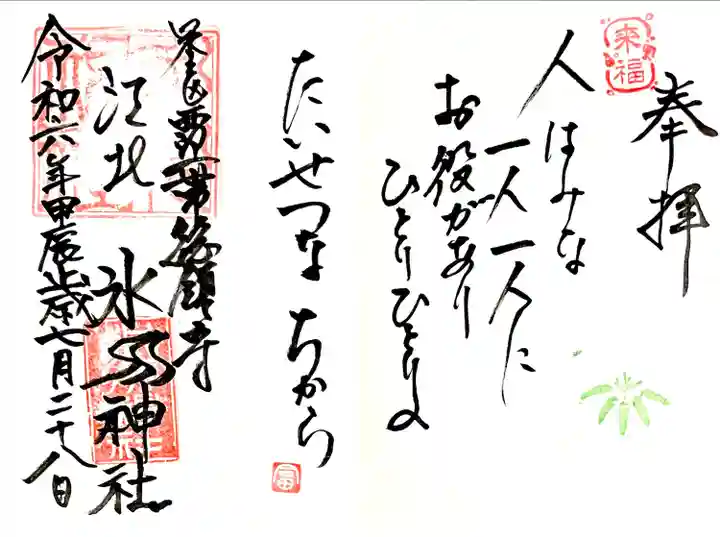 奉拝
来福
人はみな
一人一人に
お役があり
ひとりひとりの
たいせつな ちから
江北
氷川神社
令和六年甲辰歳七月二十八日